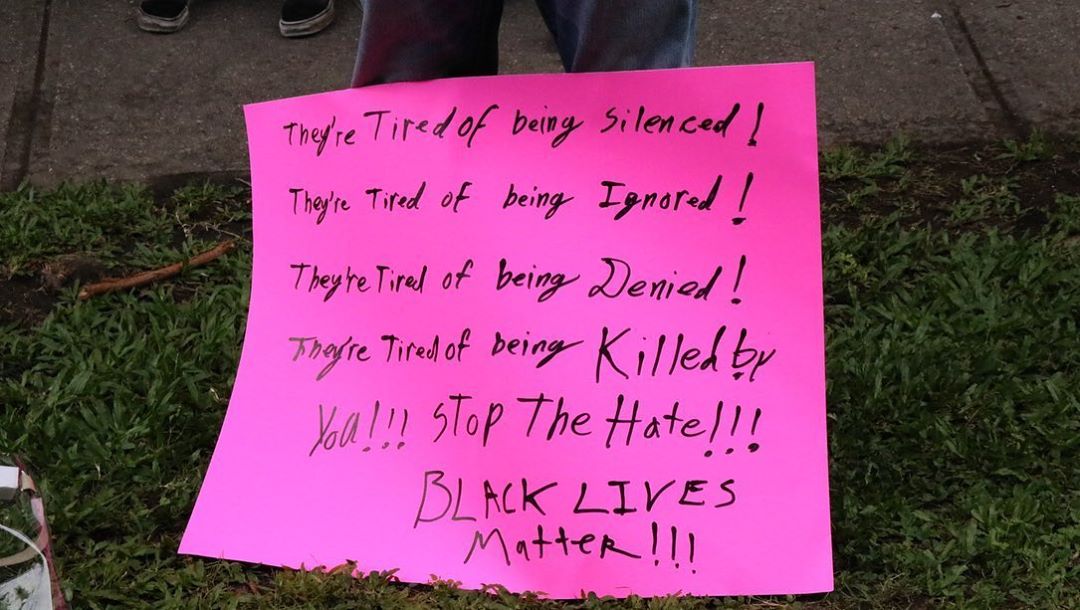 They're Tired of being Silenced!
They're Tired of being Ignored!
They're Tired of being Denied!
They're Tired of being Killed by
You!!! STOP The Hate!!!
BLACK LIVES
Matter!!!